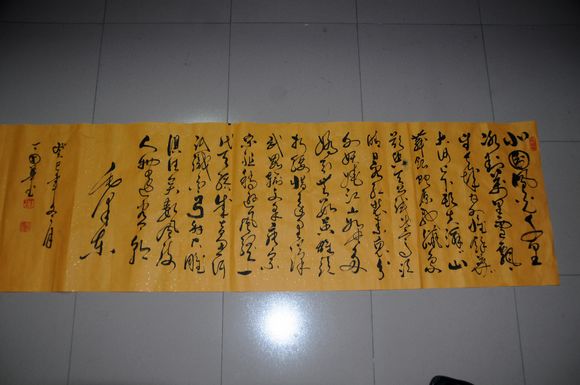 北国风光千里
冰封万里雪飘
望长城内外惟余莽
大河上下顿失滔滔山
舞银蛇原驰蜡象
欲与天公试比高须
晴日看红装素裹
分外妖娆江山如此多
娇引无数英雄竞
折腰惜秦皇汉
武略输文采唐
宗宋祖稍逊风骚一
代天骄成吉思汗
只识弯弓射大雕
俱往矣数风流
人物还看今朝
毛泽东
癸巳年冬月